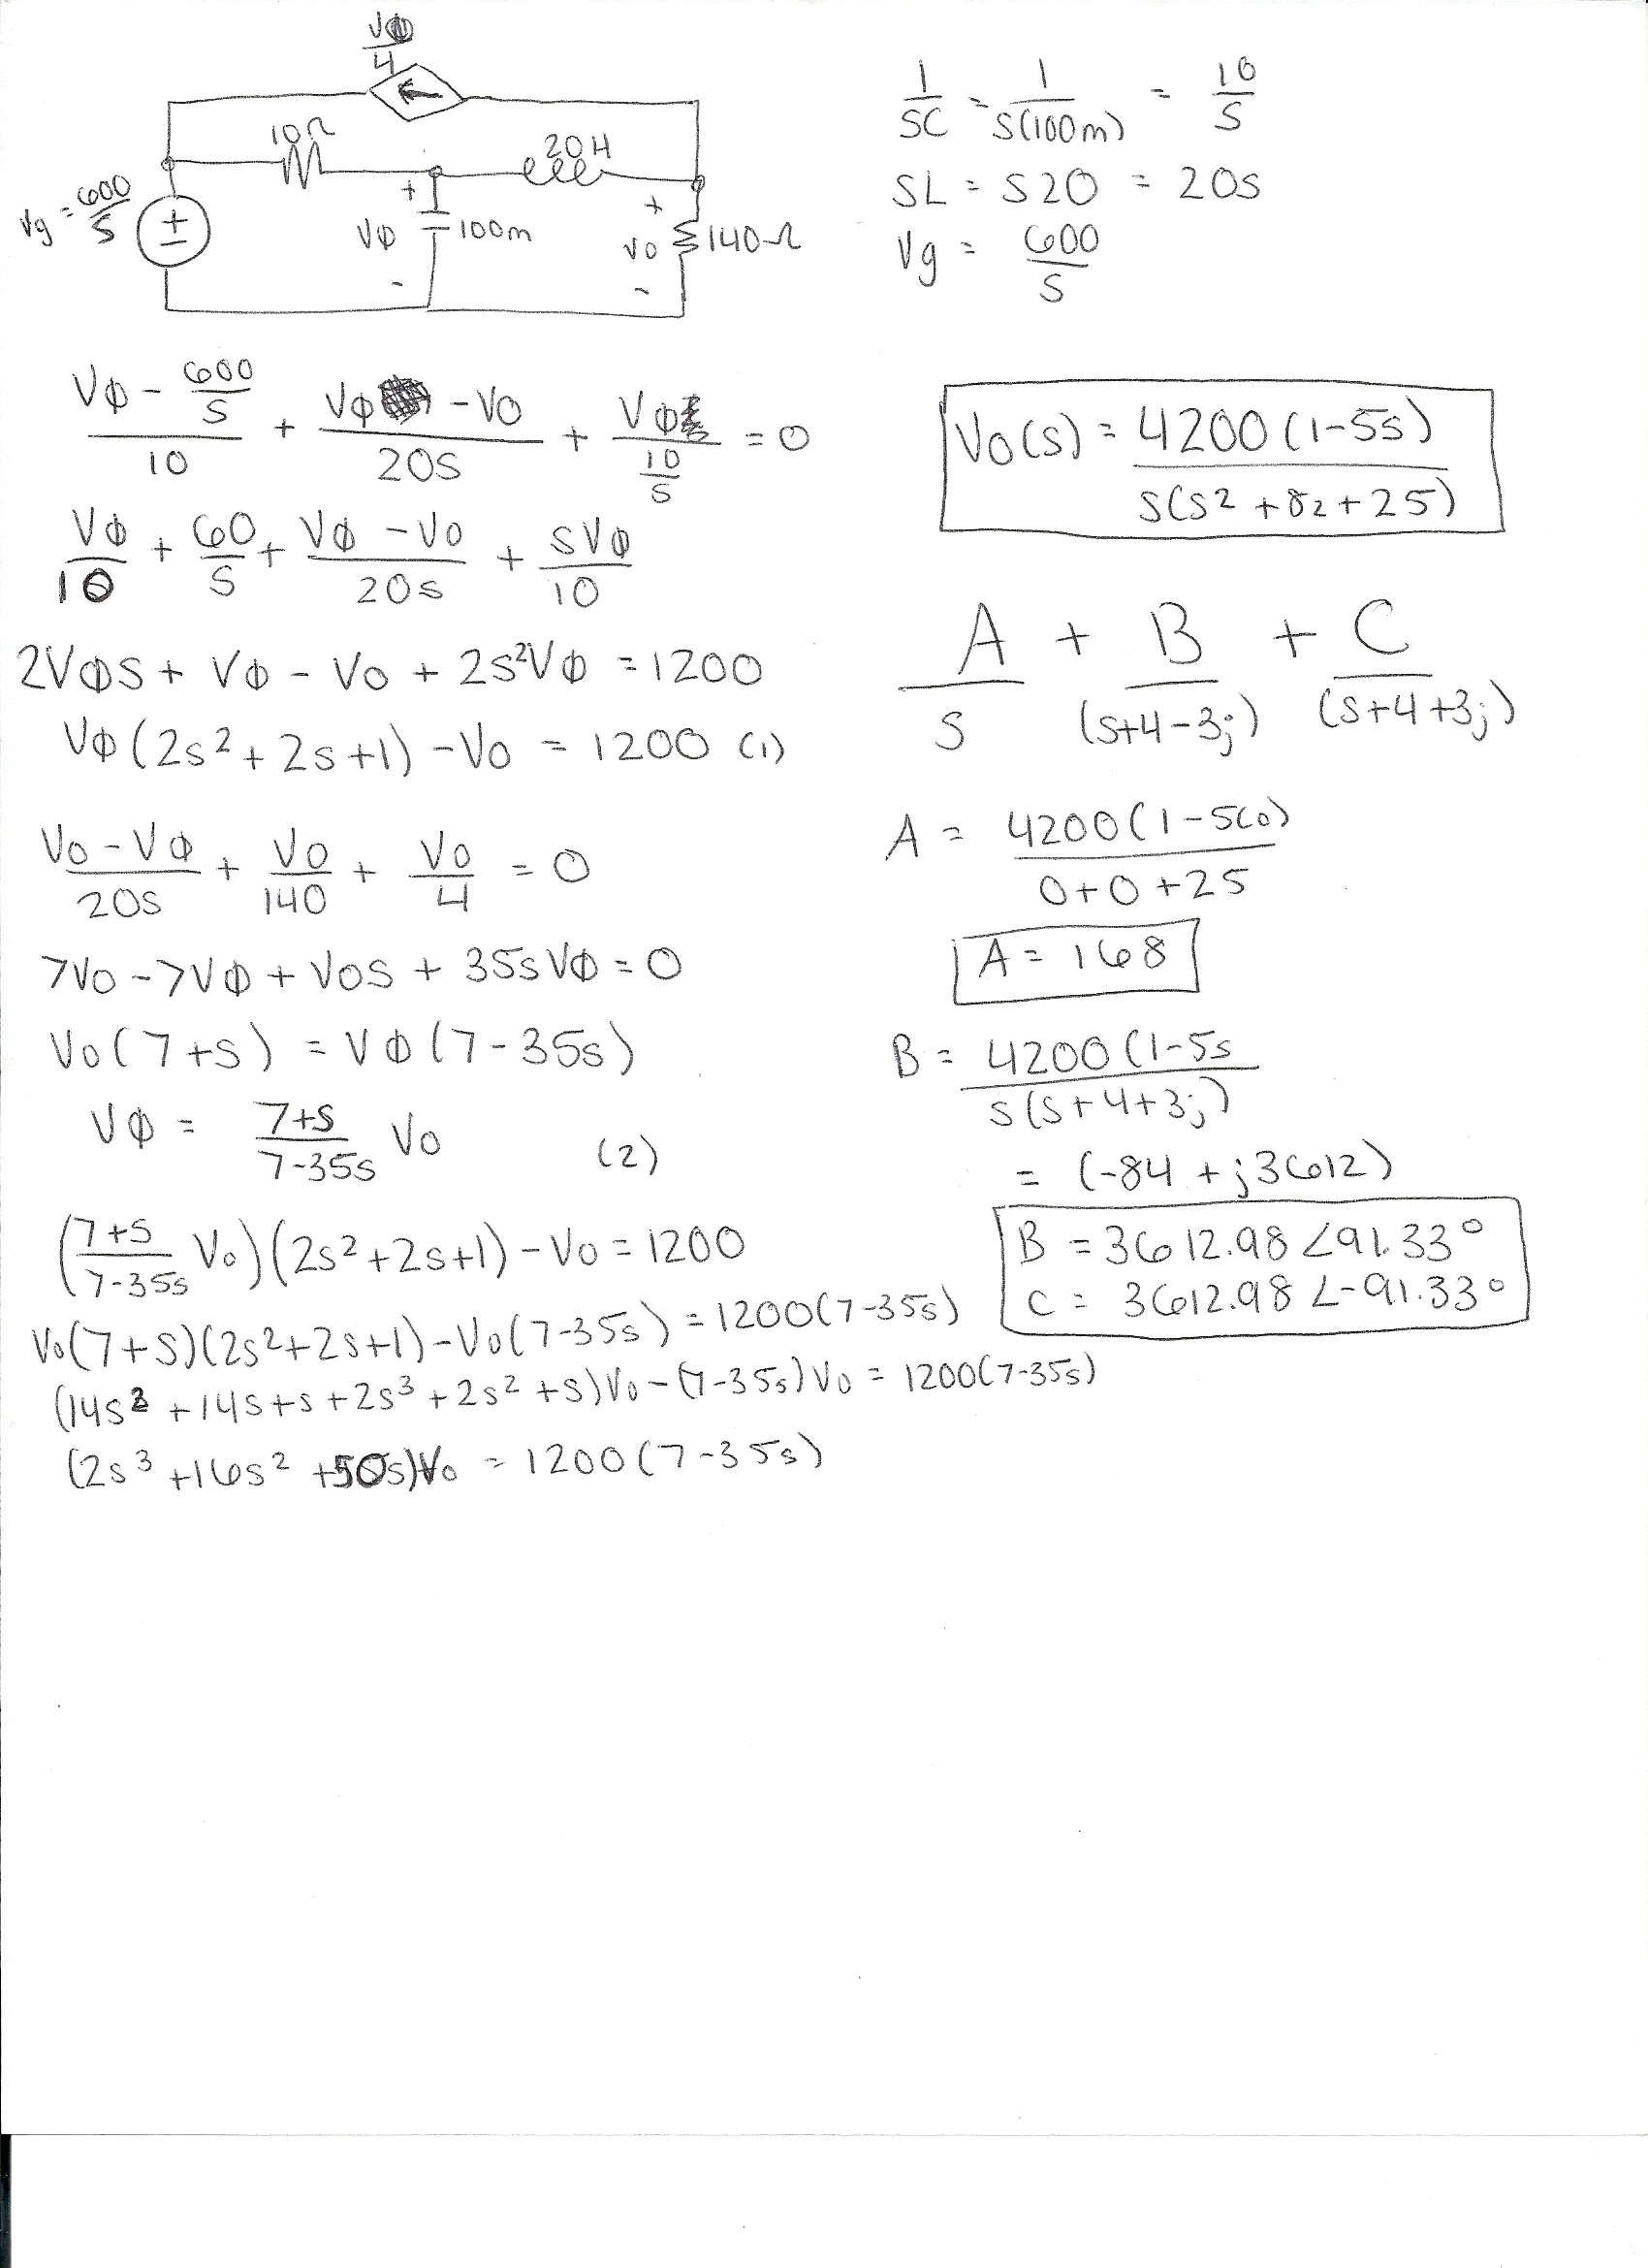 Vφ/4
10Ω
20H
Vg = 600/S
+
-
+
Vφ
-
100m
+
Vo
-
140Ω
Vφ - 600/S / 10 + Vφ - Vo / 20S + Vφ / 10/S = 0
Vφ/10 + 60/S + Vφ - Vo / 20s + SVφ/10
2Vφs + Vφ - Vo + 2s²Vφ = 1200
Vφ(2s² + 2s+1) - Vo = 1200 (1)
Vo - Vφ / 20s + Vo/140 + Vo/4 = 0
7Vo - 7Vφ + Vos + 35sVφ = 0
Vo(7+s) = Vφ(7-35s)
Vφ = 7+s / 7-35s Vo (2)
(7+s / 7-35s Vo)(2s²+2s+1) - Vo = 1200
Vo(7+s)(2s²+2s+1) - Vo(7-35s) = 1200(7-35s)
(14s² + 14s+s + 2s³ + 2s² + s)Vo - (7-35s)Vo = 1200(7-35s)
(2s³ + 16s² + 50s)Vo = 1200(7-35s)
1/SC = 1/S(100m) = 10/S
SL = S20 = 20s
Vg = 600/S
Vo(s) = 4200(1-5s) / s(s² + 8z + 25)
A/S + B/(s+4-3j) + C/(s+4+3j)
A = 4200(1-5(0) / 0+0+25
A = 168
B = 4200(1-5s / s(s+4+3j)
= (-84 + j3612)
B = 3612.98 ∠91.33°
C = 3612.98 ∠-91.33°